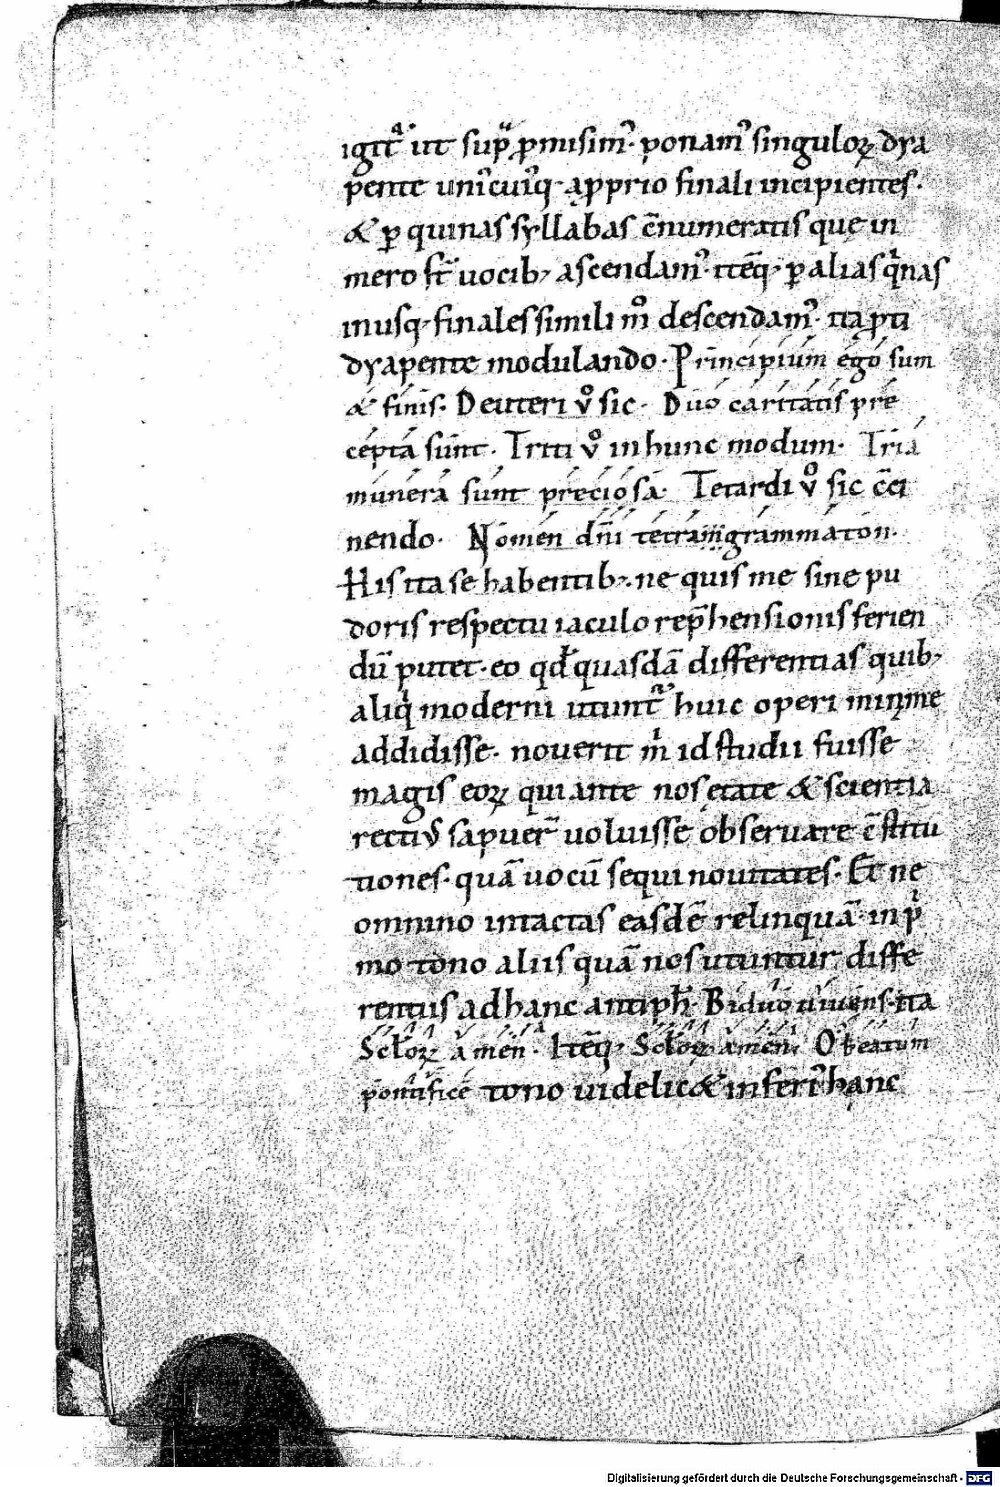 igit᷑ ut supᷓ p̄misim᷒· ponam᷒ singuloꝝ dya
pente uni᷒cuiꝰq· ap̱prio finali incipientes·
& ꝑ quinas syllabas c̄numeratis que in
mero st̄ uocib; ascendam᷒· itēq· ꝑ alias qͥnas
inusq· finales simili mͦ descendam᷒· ita ꝓti
dyapente modulando· Principium ego sum
& finis· Deuteri ꝟͦ sic· Duo caritatis pre
cepta sunt· Triti ꝟͦ in hunc modum· Tria
munera sunt preciosa· Tetardi ꝟͦ sic c̄ci
nendo· Nomen dn̄i tetragrammaton·
His ita se habentib;· ne quis me sine pu
doris respectu iaculo rep̄hensionis ferien
dū putet· eo qd̄ quasdā differentias quib;
aliqͥ moderni utunt᷑ huic operi minime
addidisse· nouerit mͥ id studii fuisse
magis eoꝝ qui ante nos ętate & scientia
rectiꝰ sapuer̄ uoluisse obseruare c̄stitu
tiones· quā uocū sequi nouitates· Et ne
omnino intactas easdē relinquā· in pͥ
mo tono aliis quā nos utuntur diffe
rentiis ad hanc antiph̄· Biduo uiuens· ita
Sc̄loꝝ amen· Itēq· Sc̄loꝝ amen· O beatum
pontifice tono uidelic& inferi᷒ hanc
Digitalisierung gefördert durch die Deutsche Forschungsgemeinschaft - DFG